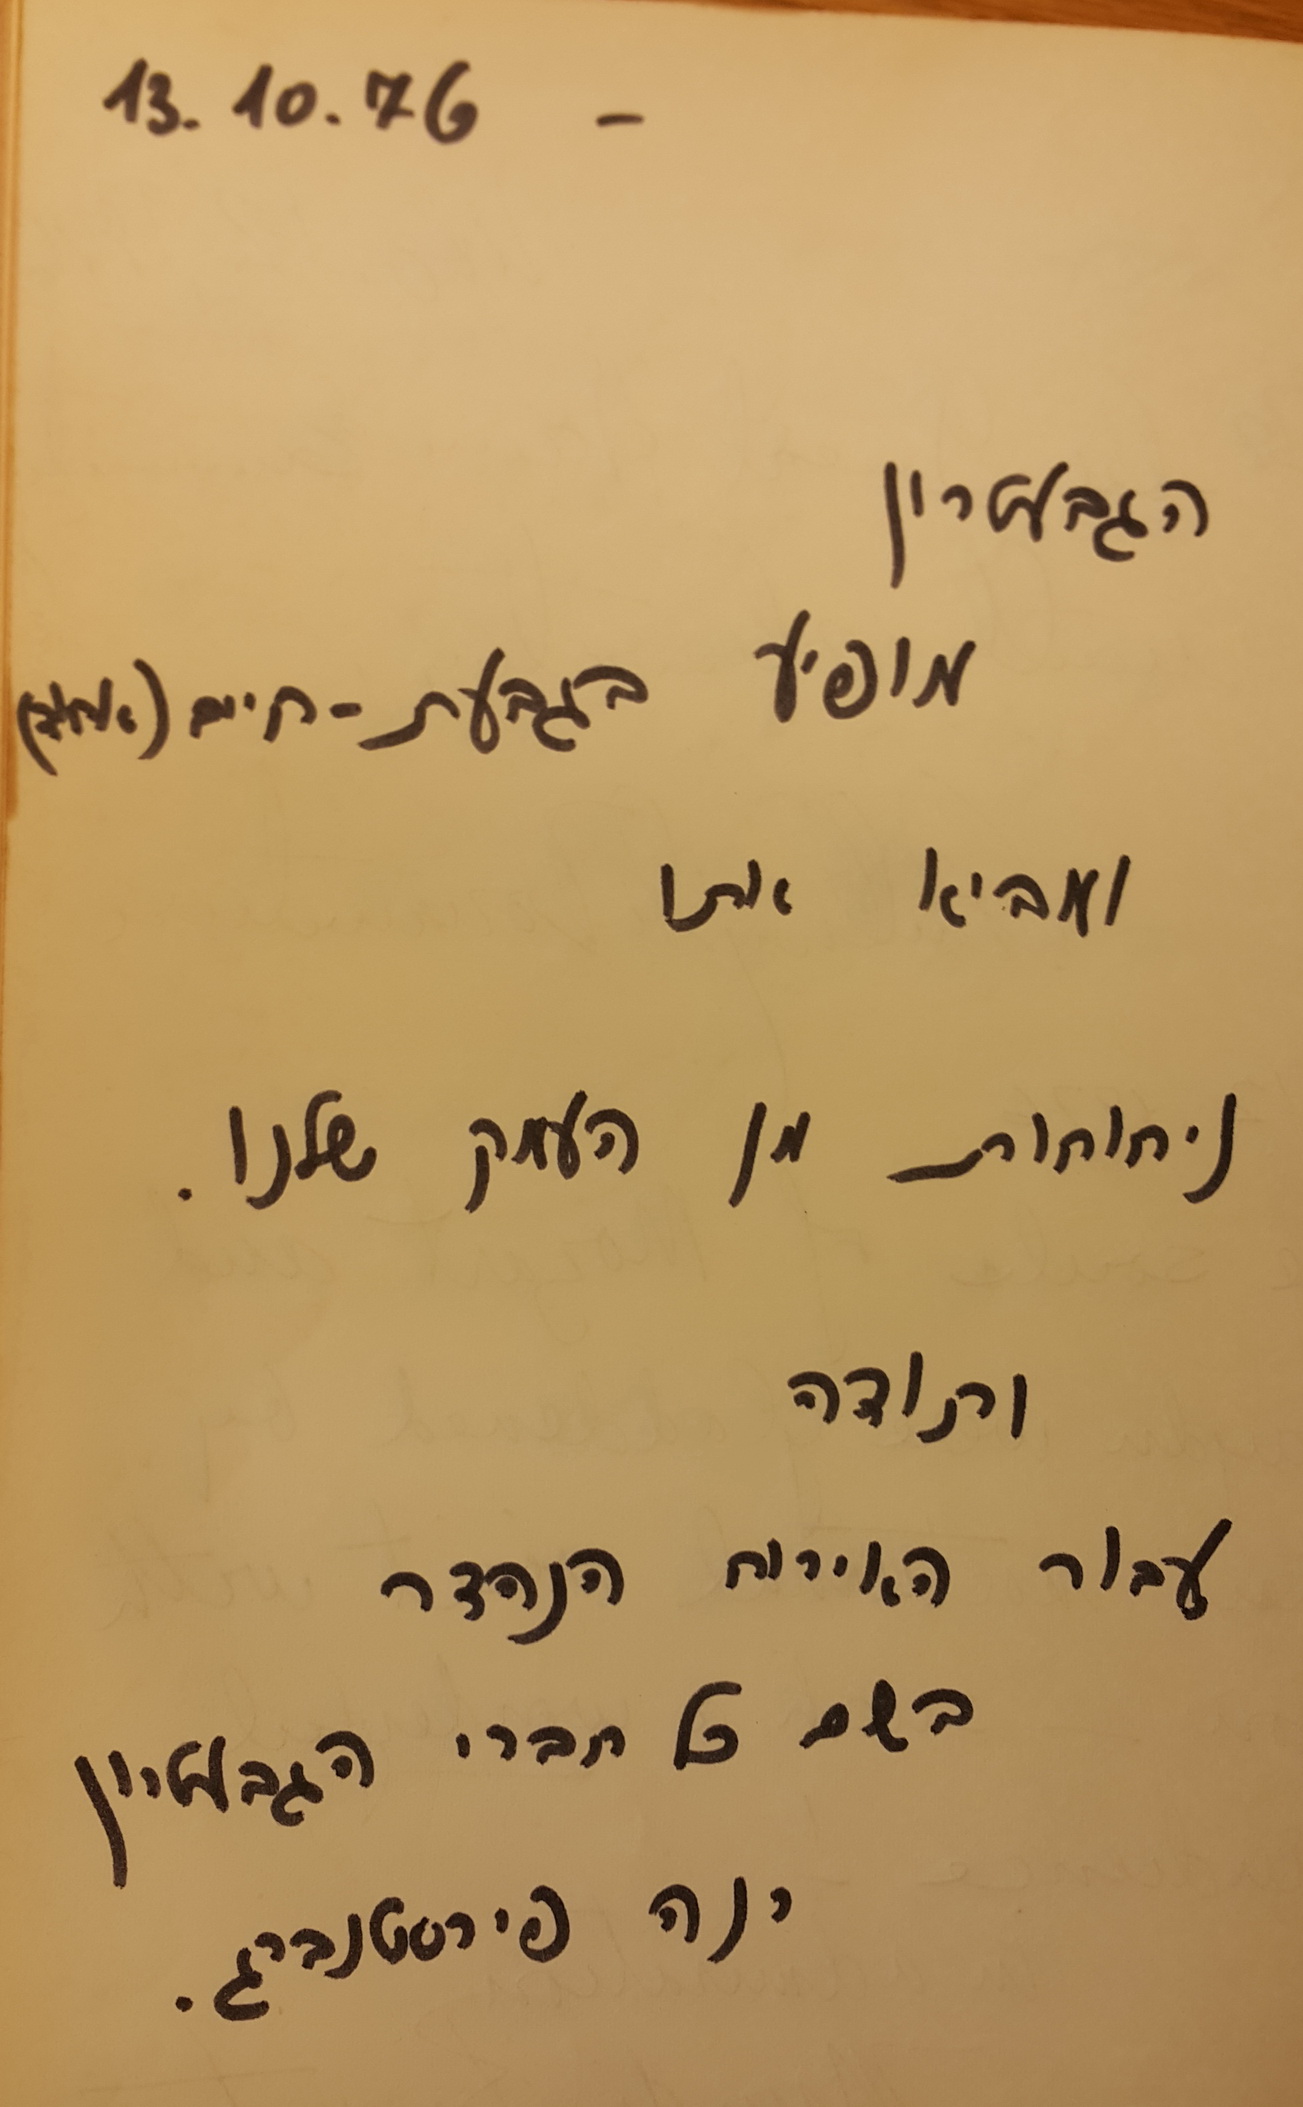 13.10.76 -
הגבעטרון
מופיע בגבעת-חיים (אחוד)
ומביא אתו
ניחוחות מן העמק שלנו.
ותודה
עבור האירוח הנהדר
בשם כל חברי הגבעטרון
ינה פירסטנברג.